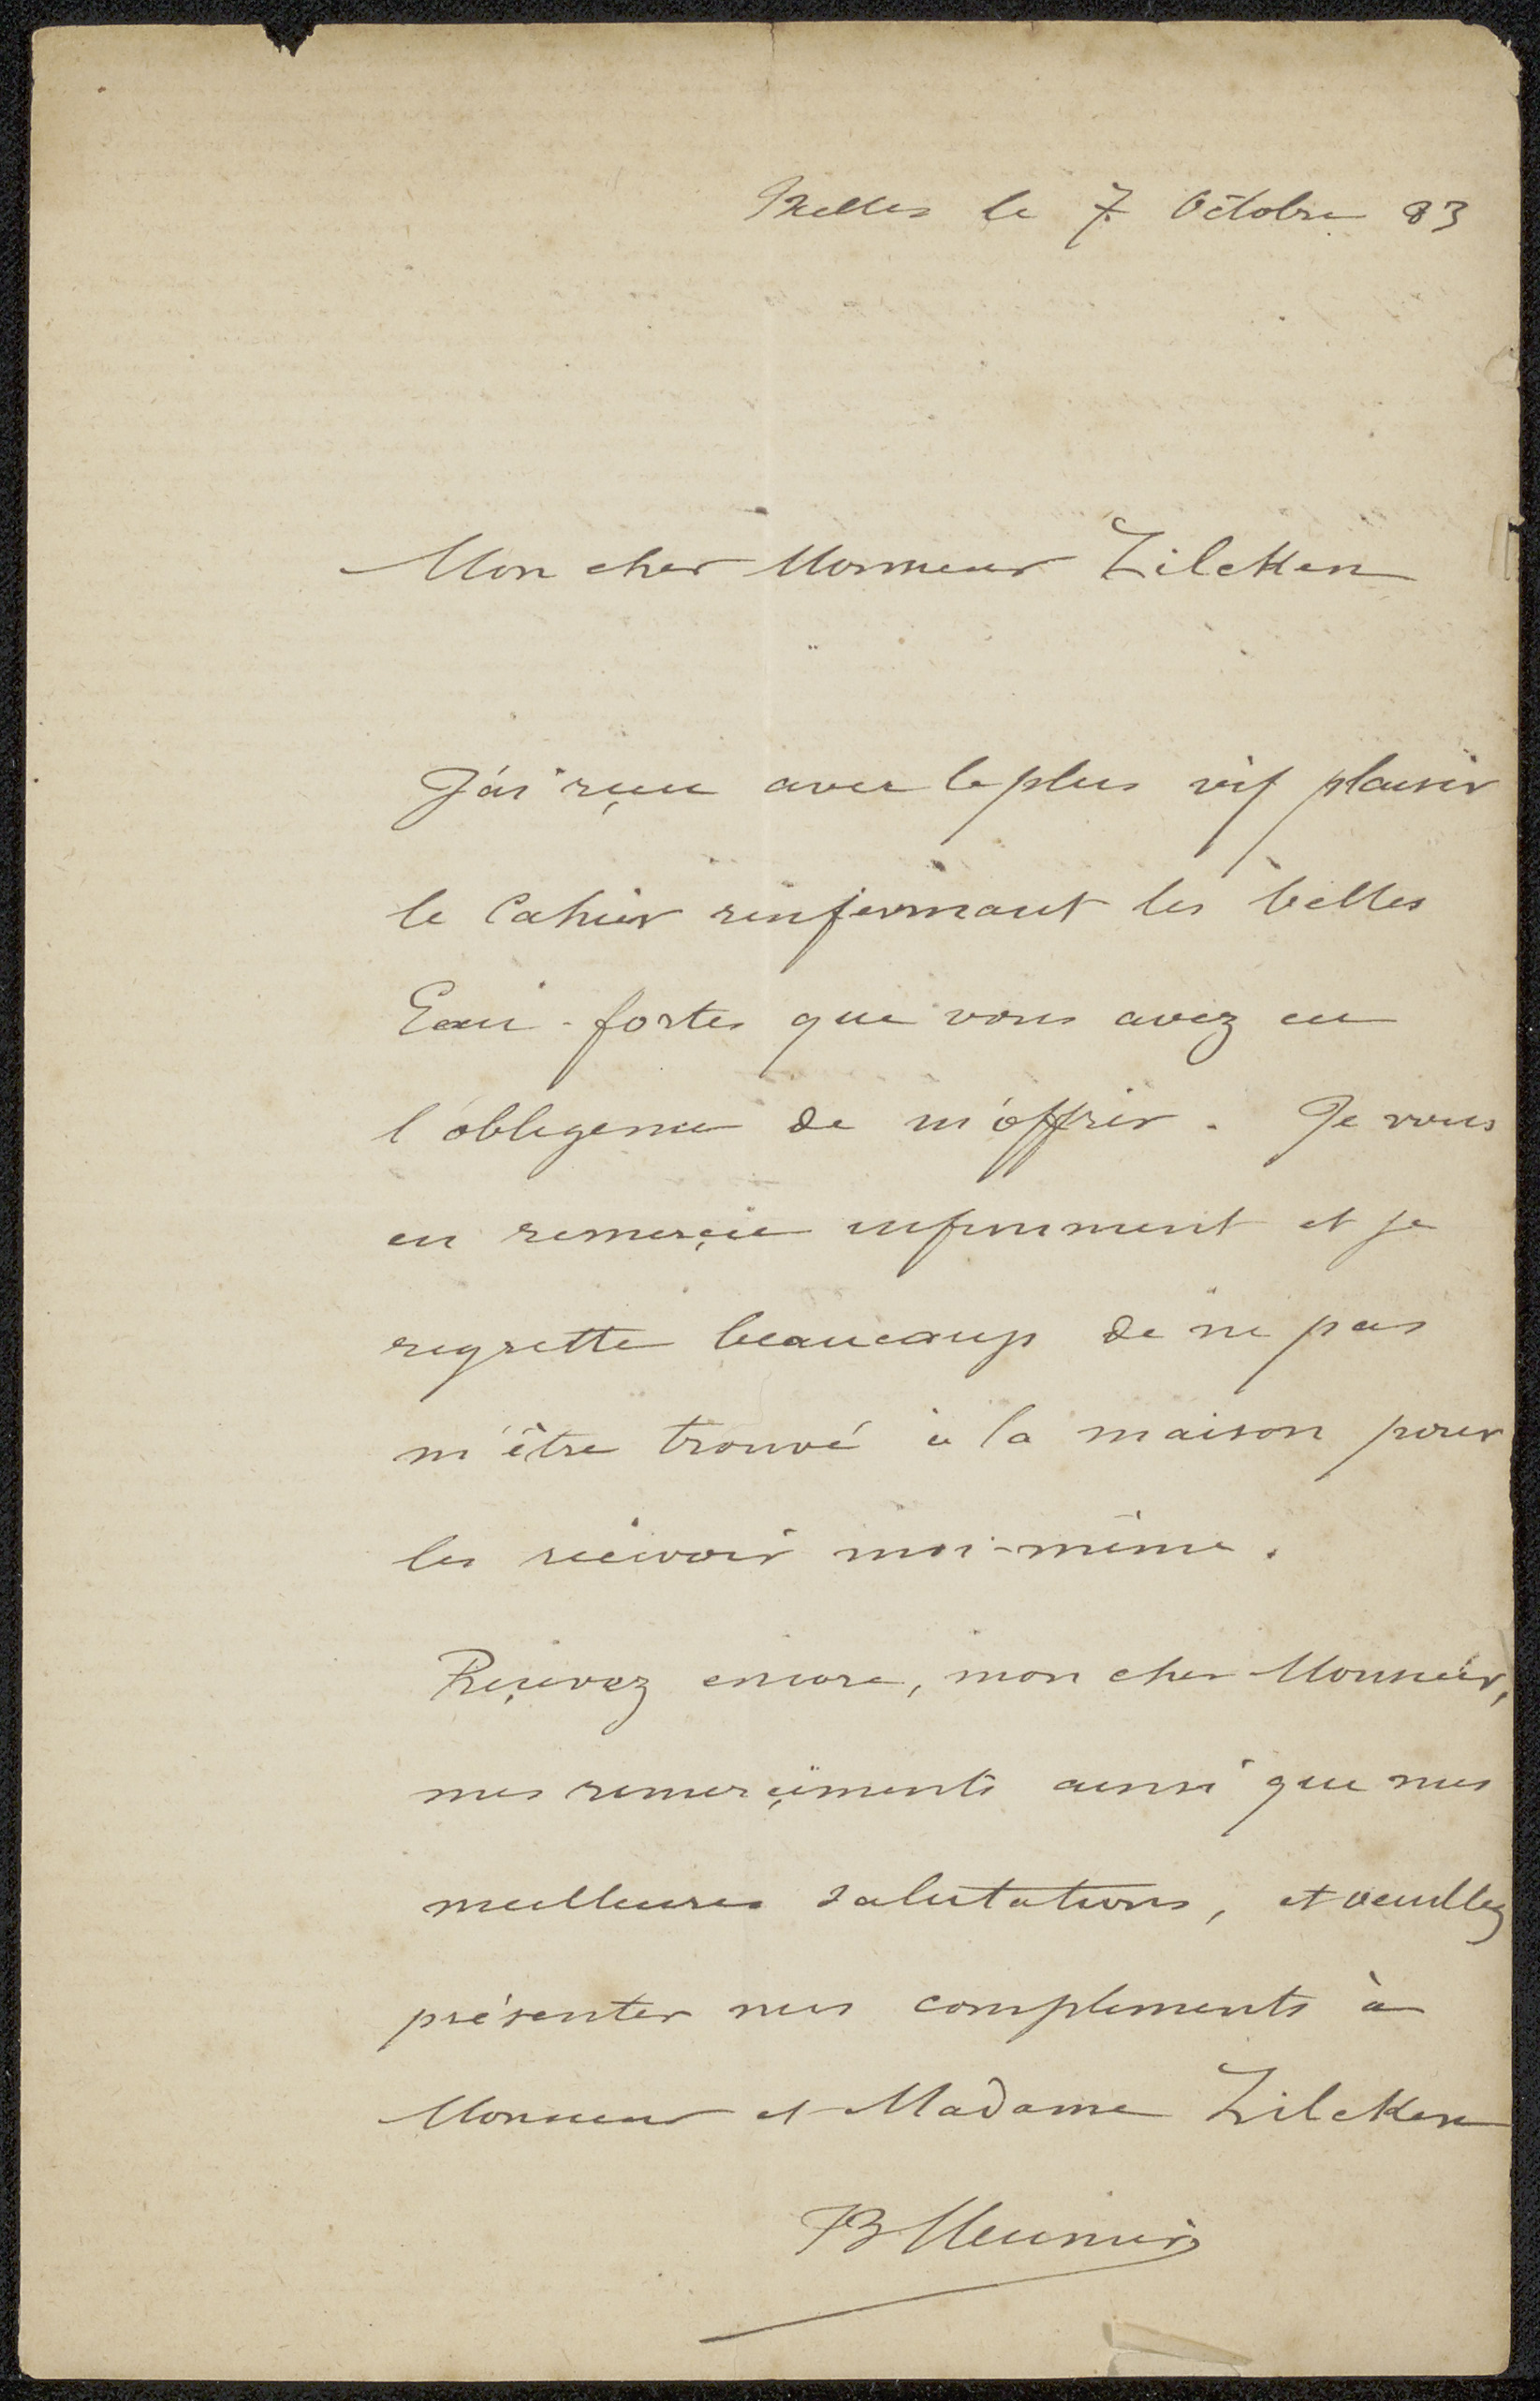 Ixelles le 7 Octobre 83
Mon cher Monsieur Zilcken
J'ai reçu avec le plus vif plaisir
le Cahier renfermant les belles
Eaux-fortes que vous avez eu
l'obligence de m'offrir. Je vous
en remerçie infiniment et je
regrette beaucoup de ne pas
m'être trouvé à la maison pour
les recevoir moi-même.
Reçevez encore, mon cher Monsieur,
mes remerçiments ainsi que mes
meilleures salutations, et veuillez
présenter mes compliments à
Monsieur et Madame Zilcken
JB Meunier